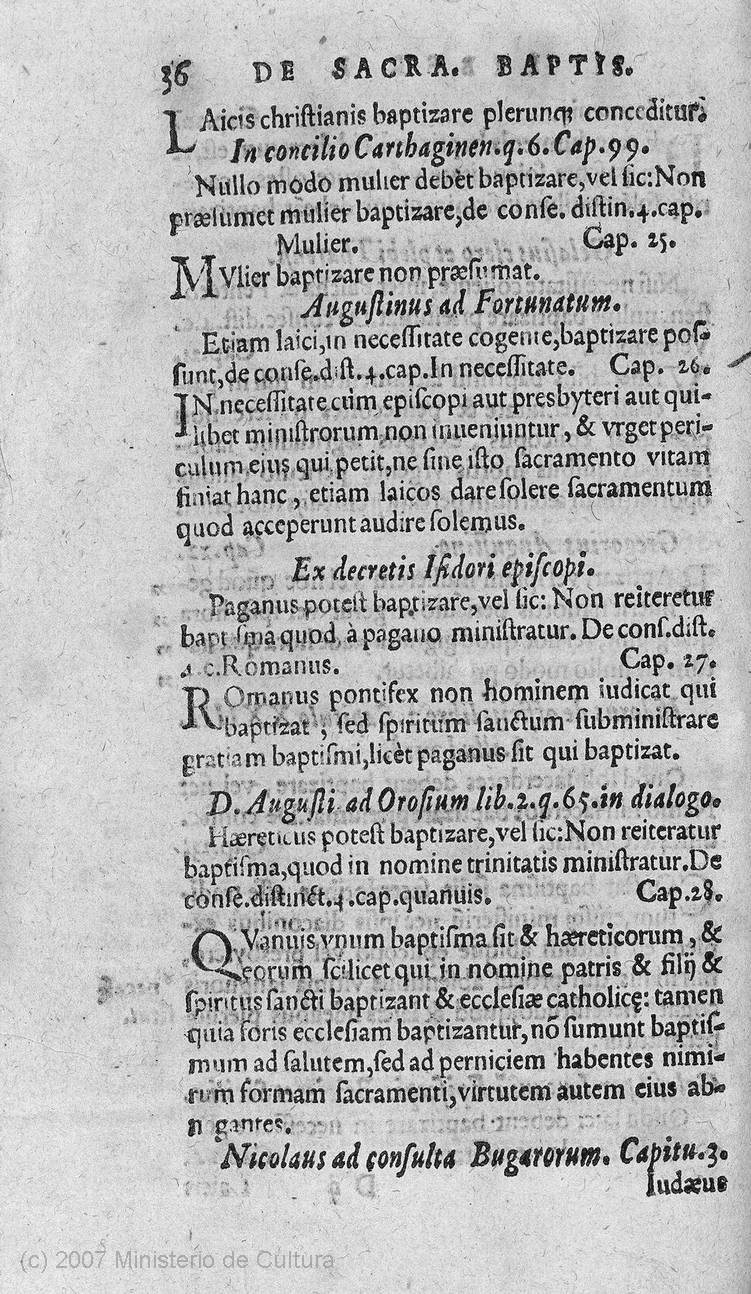 36 DE SACRA. BAPTIS.
LAicis christianis baptizare plerunq; conceditur.
In concilio Carthaginen.q.6.Cap.99.
Nullo modo mulier debèt baptizare,vel sic:Non
præsumet mulier baptizare,de conse. distin.4.cap.
Mulier. Cap. 25.
MVlier baptizare non præsumat.
Augustinus ad Fortunatum.
Etiam laici,in necessitate cogente,baptizare pos-
sunt,de conse.dist.4.cap.In necessitate. Cap. 26.
IN necessitate cùm episcopi aut presbyteri aut qui-
libet ministrorum non inueniuntur, & vrget peri-
culum eius qui petit,ne sine isto sacramento vitam
finiat hanc, etiam laicos dare solere sacramentum
quod acceperunt audire solemus.
Ex decretis Isidori episcopi.
Paganus potest baptizare,vel sic: Non reiteretur
baptisma quod à pagano ministratur. De cons.dist.
4.c.Romanus. Cap. 27.
ROmanus pontifex non hominem iudicat qui
baptizat, sed spiritum sanctum subministrare
gratiam baptismi,licèt paganus sit qui baptizat.
D. Augusti ad Orosium lib.2.q.65.in dialogo.
Hæreticus potest baptizare,vel sic:Non reiteratur
baptisma,quod in nomine trinitatis ministratur.De
conse.distinct.4.cap.quanuis. Cap.28.
QVanuis vnum baptisma sit & hæreticorum, &
eorum scilicet qui in nomine patris & filij &
spiritus sancti baptizant & ecclesiæ catholicę: tamen
quia foris ecclesiam baptizantur,nõ sumunt baptis-
mum ad salutem,sed ad perniciem habentes nimi-
rum formam sacramenti,virtutem autem eius ab-
n gantes.
Nicolaus ad consulta Bugarorum. Capitu.3.
Iudæus
(c) 2007 Ministerio de Cultura